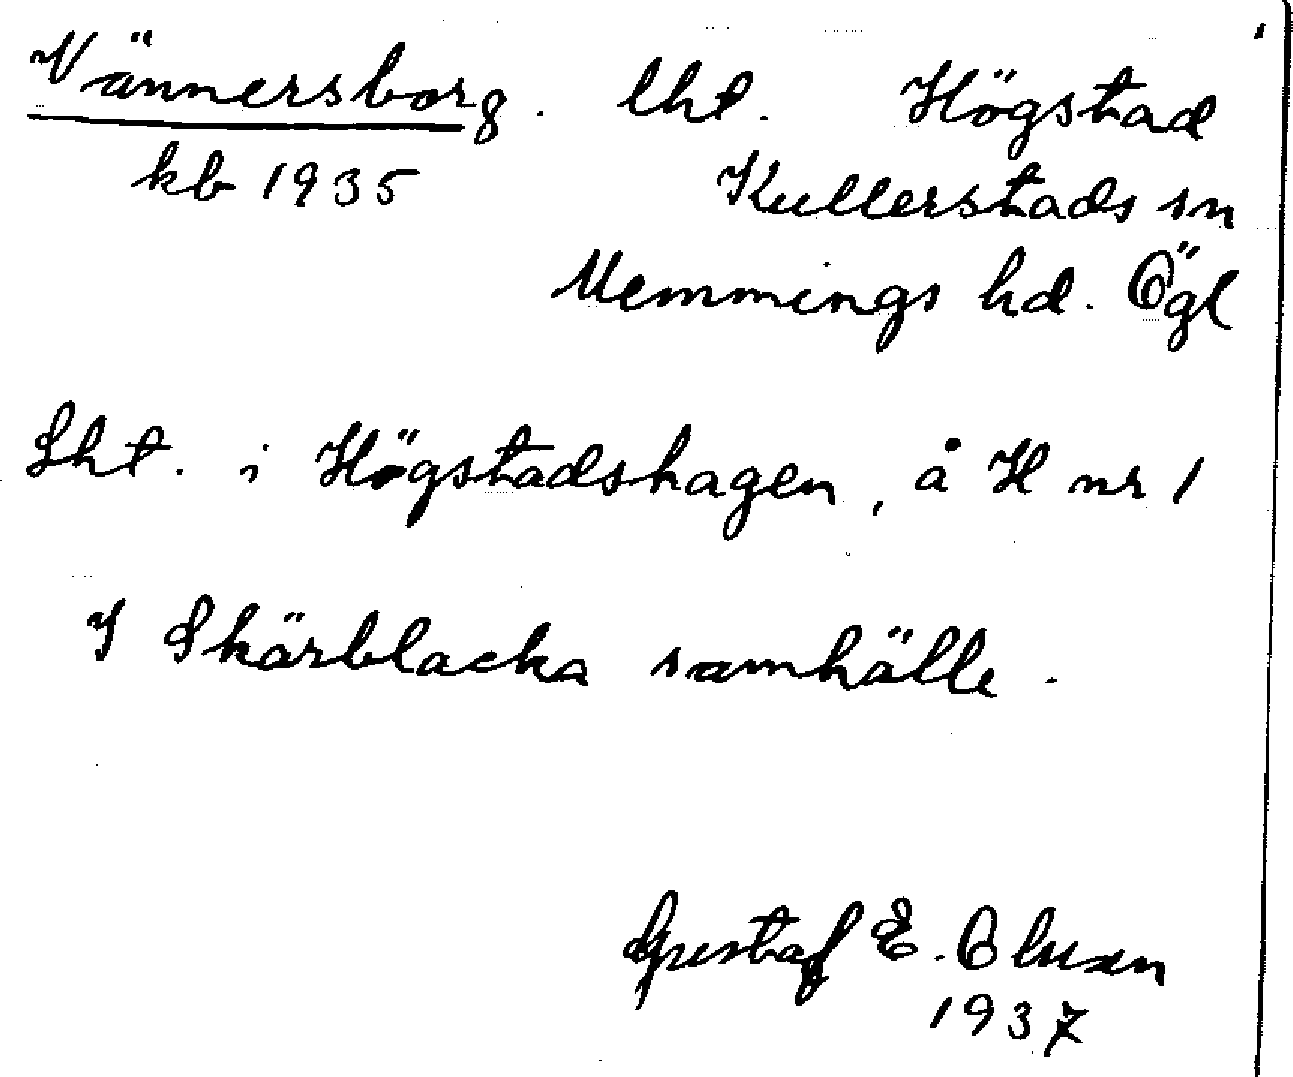 Vännersborg. lht. Högstad
kb 1935 Kullerstads sn
Memmings hd. Ögl
Lht. i Högstadshagen, å H nr 1
I Skärblacka samhälle.
Gustaf E. Olsson
1937